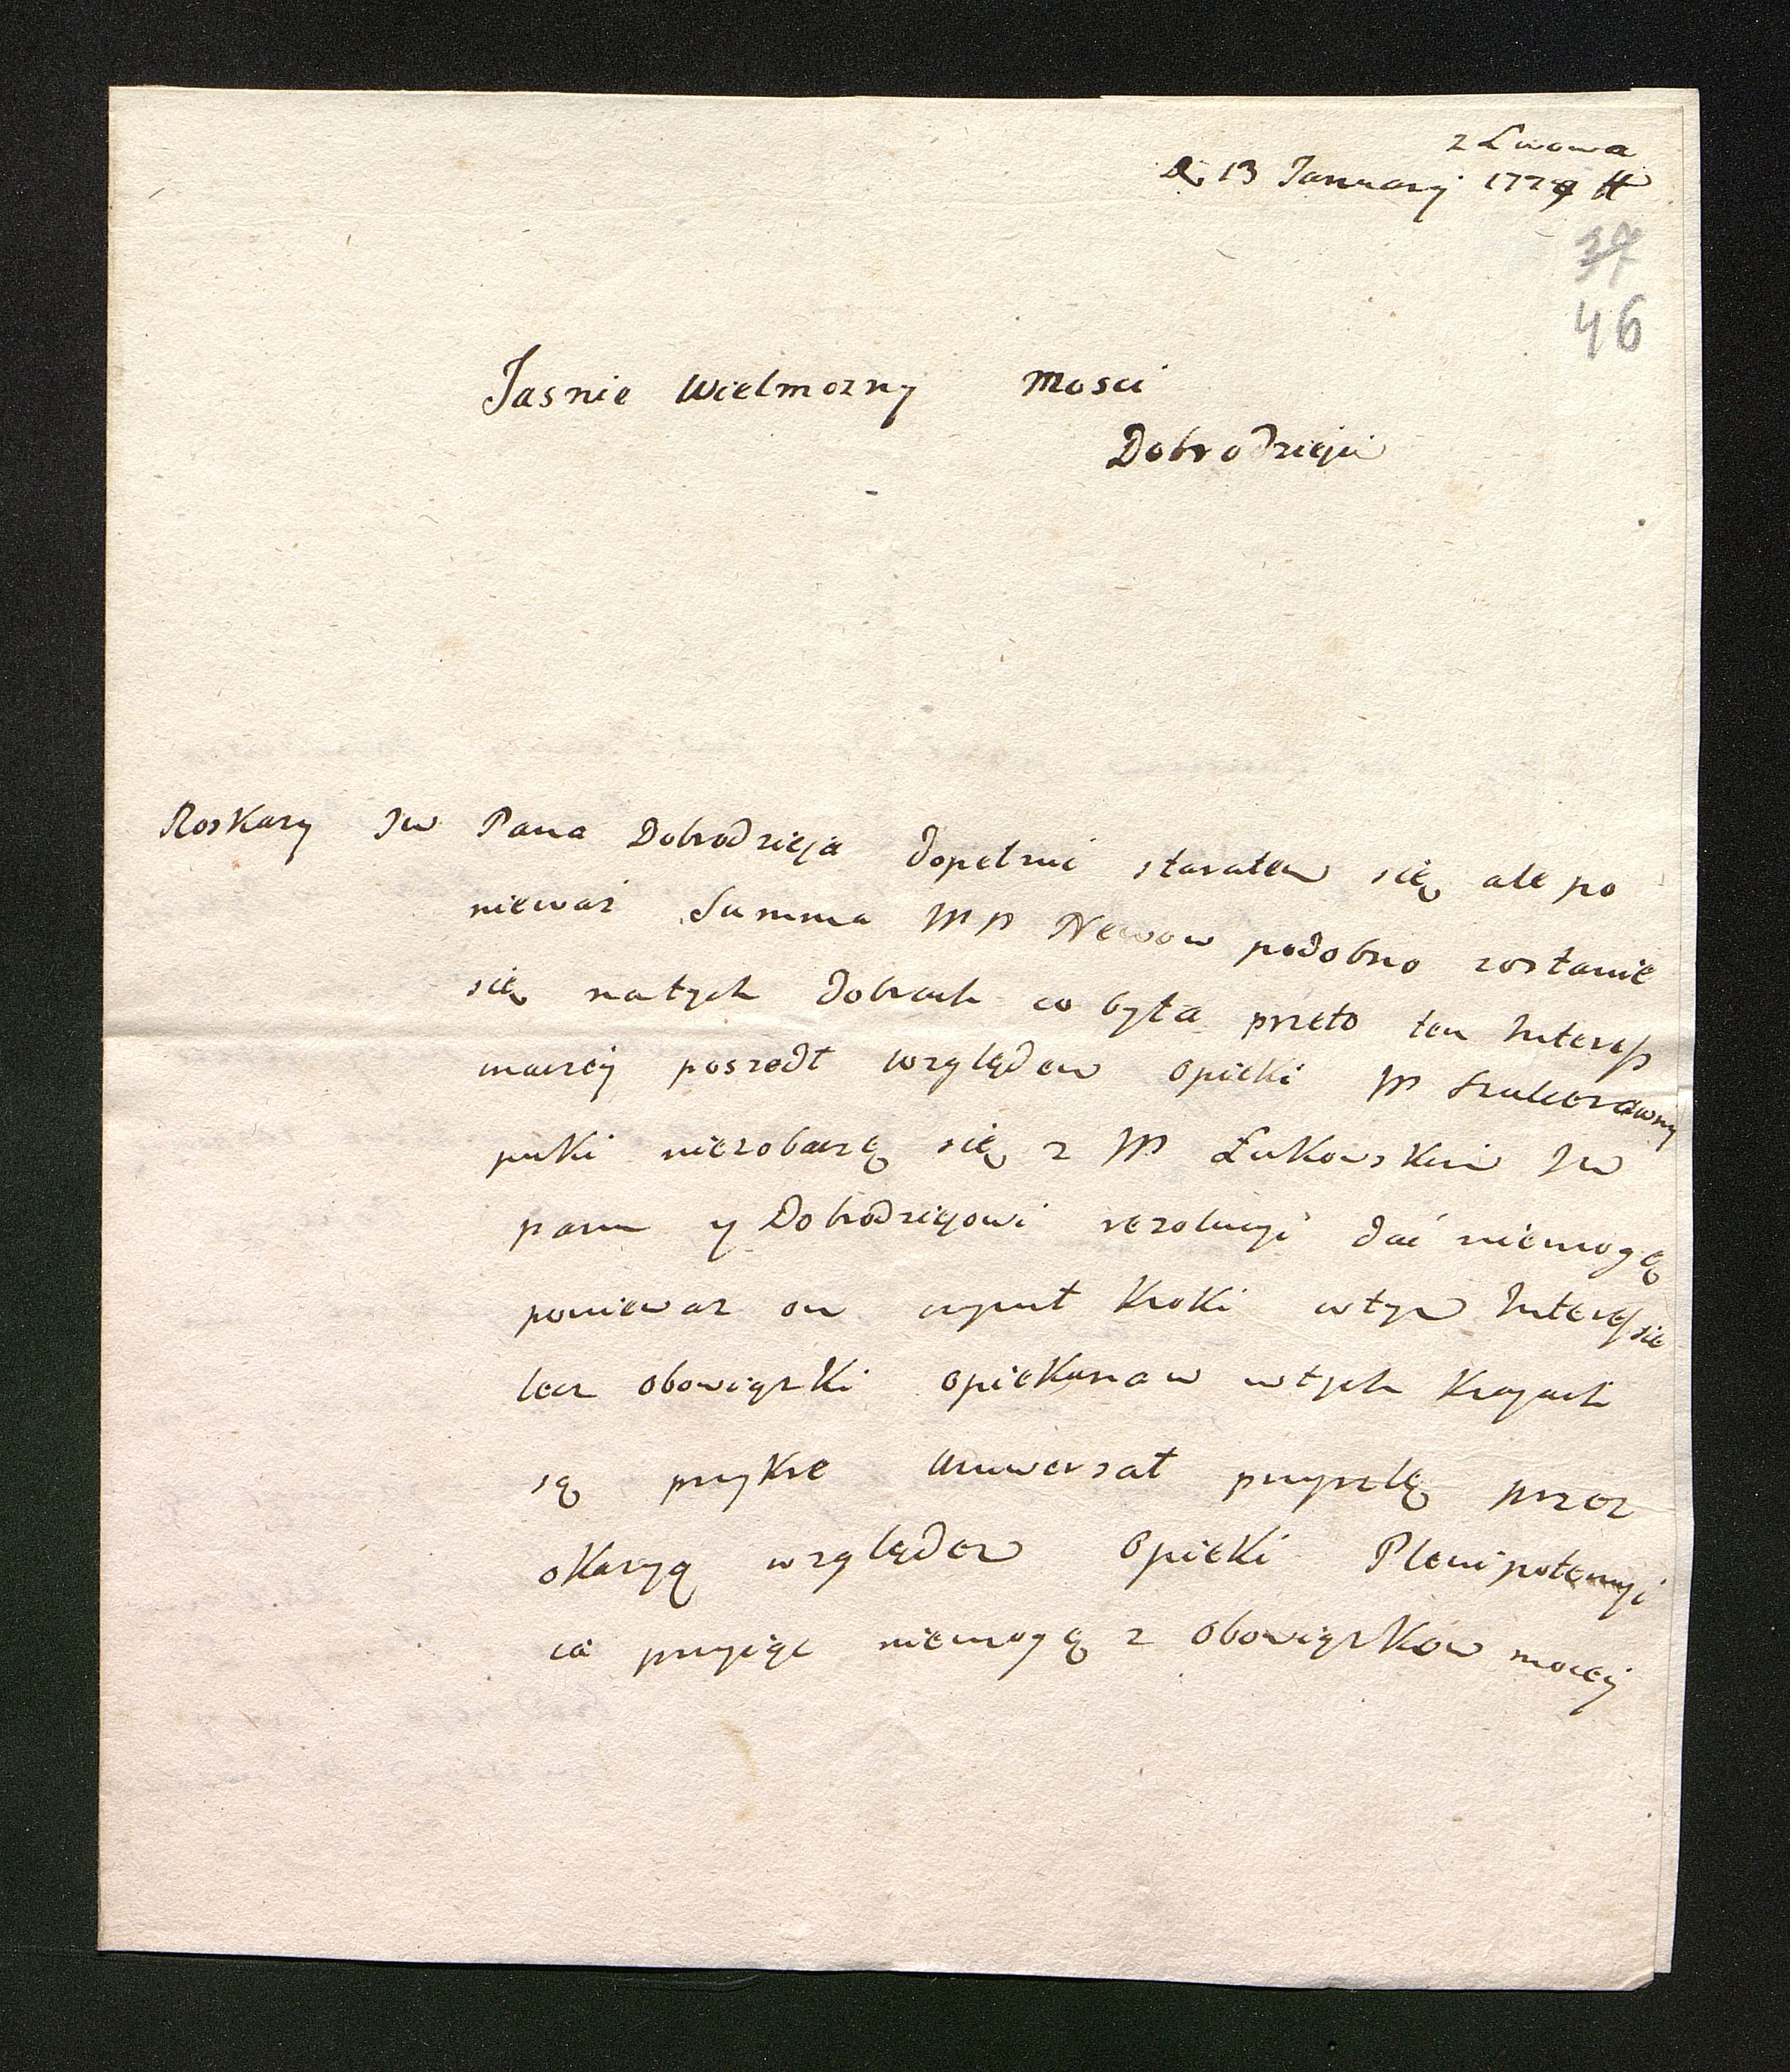 z Lwowa
D. 13 January 1779 R
37
46
Jasnie Wielmozny Mosci
Dobrodzieju
Roskazy Jw Pana Dobrodzieja dopełnic starałem się ale po
niewaz Summa JMP Newow podobno zostanie
się natych dobrach co była przeto ten Interess
inaczej poszedł względem opieki JP
puki niezobaczę się z JP Łukowskim Jw
panu y Dobrodziejowi rezolucyi dać niemogę
poniewaz on czynił kroki wtym Interessie
lecz obowiązki opiekunow wtych krajach
są przykre Uniwersał przyszlę przez
okazyą względem opieki Plenipotencyi
ia przyiąc niemogę z obowiązkow mocey